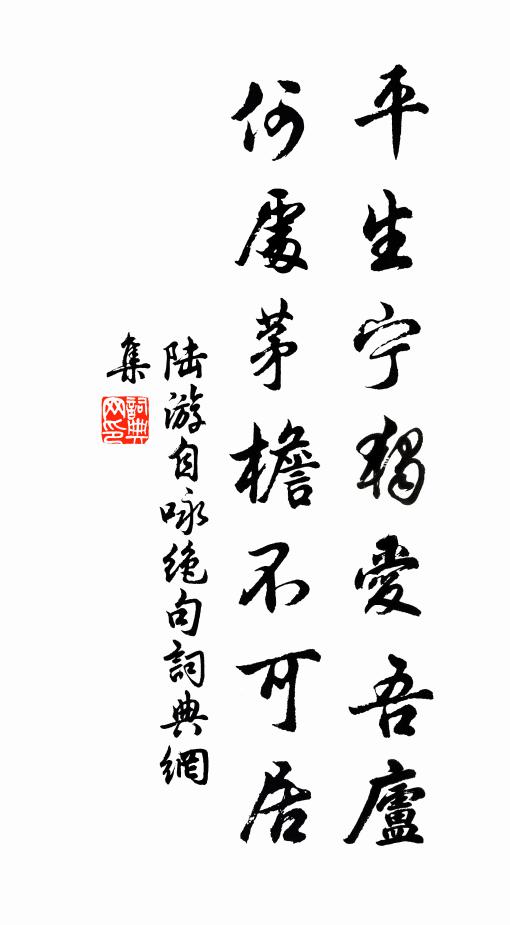 平生宁獨愛吾廬
何處茅檐不可居
陆游自咏绝句詞典網
集
詞典网印